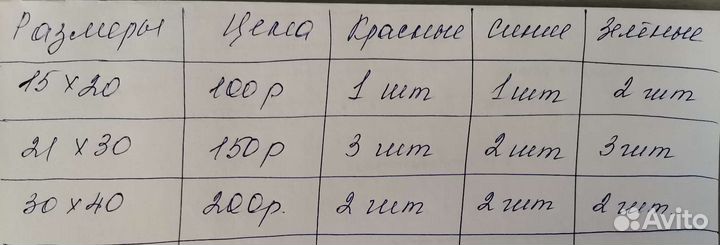 Размеры Цена Красные Синие Зелёные
15 х 20 100р 1 шт 1 шт 2 шт
21 х 30 150р 3 шт 2 шт 3 шт
30 х 40 200р. 2 шт 2 шт 2 шт
Avito